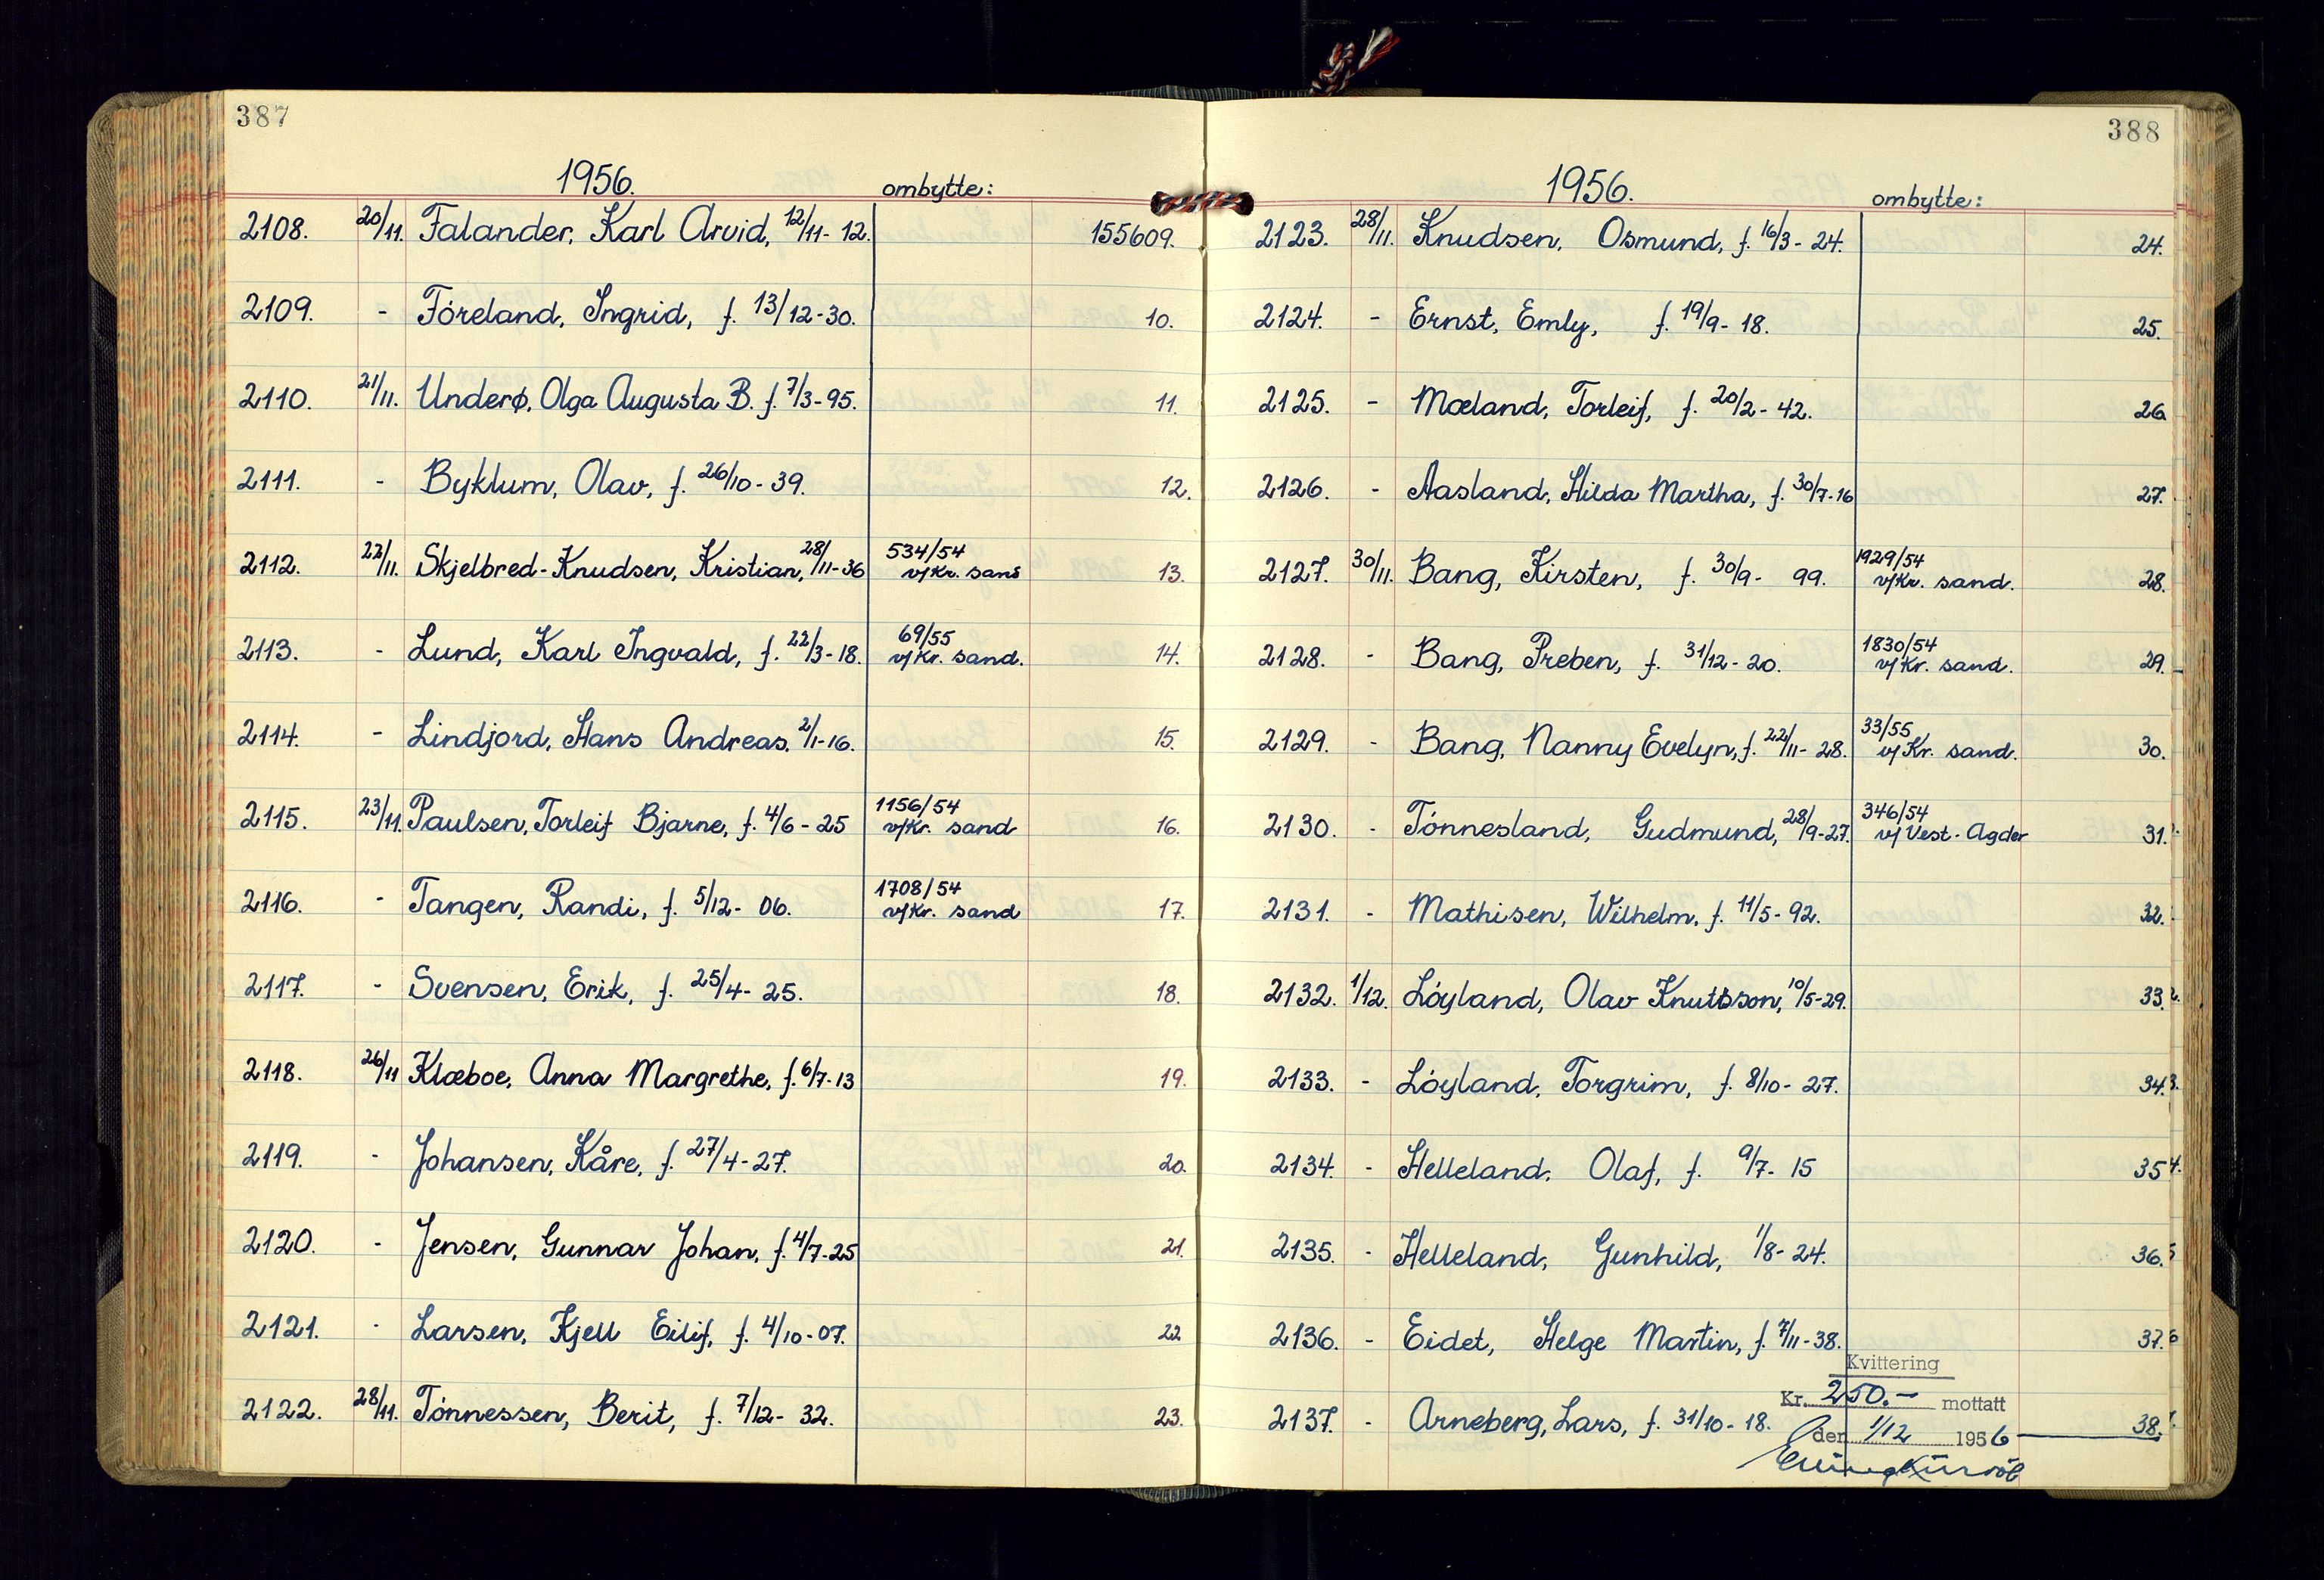 387
1956. ombytte:
2108. 20/11. Falander, Karl Arvid, 12/11-12. 155609.
2109. - Fóreland, Ingrid, f. 13/12-30. 10.
2110. 21/11. Underø, Olga Augusta B. f. 7/3-95. 11.
2111. - Byklum, Olav, f. 26/10-39. 12.
2112. 22/11. Skjelbred-Knudsen, Kristian, 28/11-36 534/54 v/Kr. sand 13.
2113. - Lund, Karl Ingvald, f. 22/3-18. 69/55 v/Kr. sand. 14.
2114. - Lindjord, Hans Andreas, 2/1-16. 15.
2115. 23/11. Paulsen, Torleif Bjarne, f. 4/6-25 1156/54 v/Kr. sand 16.
2116. - Tangen, Randi, f. 5/12-06. 1708/54 v/Kr. sand 17.
2117. - Svensen, Erik, f. 25/4-25. 18.
2118. 26/11 Klæboe, Anna Margrethe, f. 6/7-13 19.
2119. - Johansen, Kåre, f. 27/4-27. 20.
2120. - Jensen, Gunnar Johan, f. 4/7-25 21.
2121. - Larsen, Kjell Eilif, f. 4/10-07. 22.
2122. 28/11. Tónnessen, Berit, f. 7/12-32. 23.
388
1956. ombytte:
2123. 28/11. Knudsen, Osmund, f. 16/3-24. 24.
2124. - Ernst, Emly, f. 19/9-18. 25.
2125. - Mæland, Torleif, f. 20/2-42. 26
2126. - Aasland, Hilda Martha, f. 30/7-16 27.
2127. 30/11. Bang, Kirsten, f. 30/9-99. 1929/54 v/Kr. sand. 28.
2128. - Bang, Preben, f. 31/12-20. 1830/54 v/Kr. sand. 29.
2129. - Bang, Nanny Evelyn, f. 22/11-28. 33/55 v/Kr. sand. 30.
2130. - Tónnesland, Gudmund, 28/9-27. 346/54 v/Vest-Agder 31.
2131. - Mathisen, Wilhelm, f. 11/5-92. 32.
2132. 1/12. Lóyland, Olav Knutsson, 10/5-29. 33.
2133. - Lóyland, Torgrim, f. 8/10-27. 34.
2134. - Helleland, Olaf, f. 9/7-15 35
2135. - Helleland, Gunhild, 1/8-24. 36.
2136. - Eidet, Helge Martin, f. 7/11-38. 37.
2137. - Arneberg, Lars, f. 31/10-18. 38.
Kvittering
Kr. 250.- mottatt
den 1/12 1956